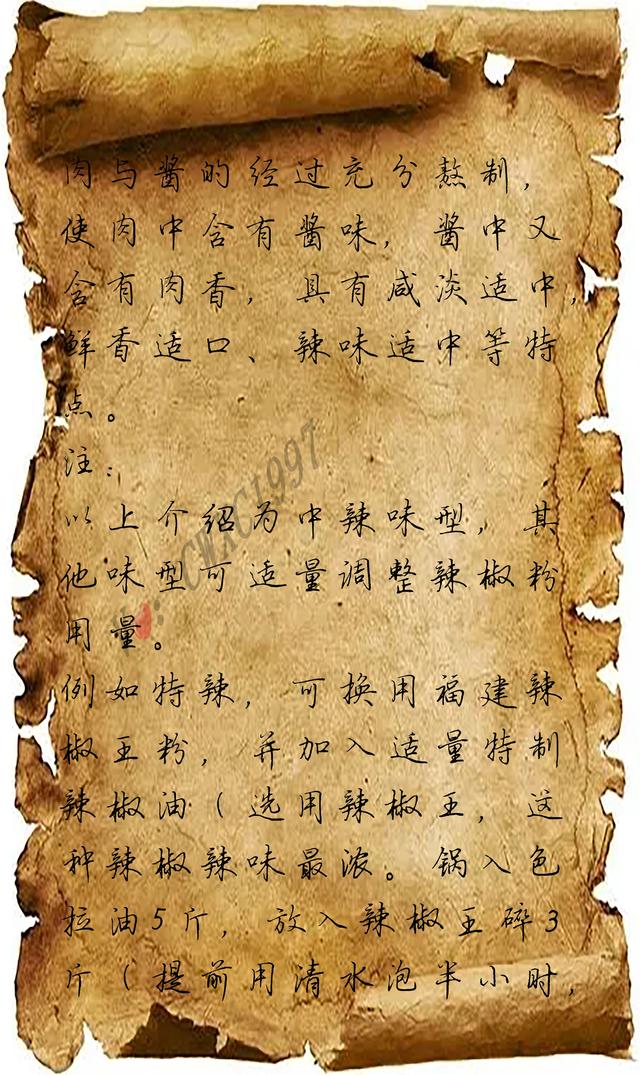 肉与酱的经过充分熬制，
使肉中含有酱味，酱中又
含有肉香，具有咸淡适中，
鲜香适口、辣味适中等特
点。
注：
以上介绍为中辣味型，其
他味型可适量调整辣椒粉
用量。
例如特辣，可换用福建辣
椒王粉，并加入适量特制
辣椒油（选用辣椒王，这
种辣椒辣味最浓。锅入色
拉油5斤，放入辣椒王碎3
斤（提前用清水泡半小时，